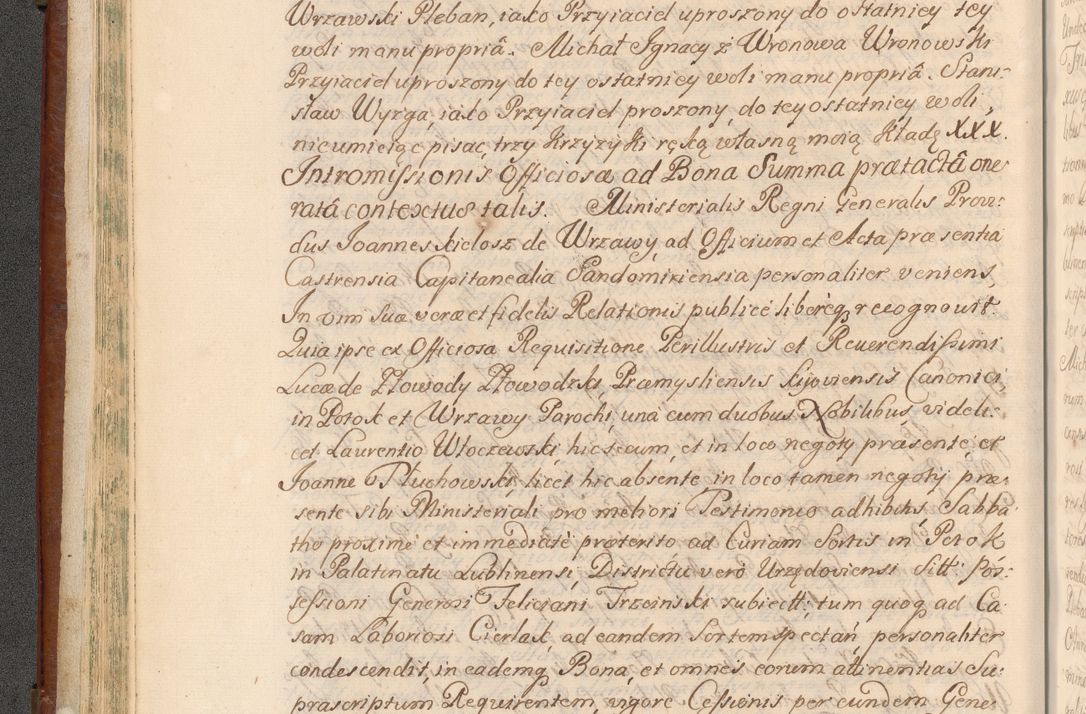 Wrzawski Pleban, iako Przyiaciel uproszony do ostatniey tey
woli manu propriâ. Michał Ignacy z Wronowa Wronowski
Przyiaciel uproszony do tey ostatniey woli manu propriâ. Stani-
sław Wyrga, iako Przyiaciel proszony, do tey ostatniey woli,
nieumieiąc pisac, trzy krzyzyki ręką własną moią kładę XXX.
Intromissionis Officiosæ ad Bona Summa prætactâ one-
ratâ contextus talis. Ministerialis Regni Generalis Provi-
dus Joannes Kielosz de Wrzawy, ad Officium et Acta præsentia
Castrensia Capitanealia Sandomiriensia personaliter veniens,
In vim suæ veræ et fidelis Relationis publicé liberéq; recognouit.
Quia ipse ex Officiosa Requisitione Perillustris et Reuerendissimi
Lucæ de Płowody Płowodzki, Præmysliensis Kijoviensis Canonici
in Potok et Wrzawy Parochi, una cum duobus Nobilibus, videli-
cet Laurentio Włoczewski, hic secum, et in loco negotÿ præsente, et
Joanne Płuchowski, licet hic absente in loco tamen negotÿ præ-
sente sibi Ministeriali pro meliori Testimonio adhibitis Sabba-
tho proximé et immediaté præterito ad Curiam Sortis in Potok
in Palatinatu Lublinensi, Districtu veró Urzędoviensi Sitt: Pos-
sessioni Generosi Feliciani Trzcinski subiectt; tum quoq; ad Ca-
sam Laboriosi Cierlak, ad eandem Sortem spectań personaliter
condescendit, in eademq; Bona, et omnes eorum attinentias Su-
prascriptum Requirentem, vigore Cessionis per eundem Gene-